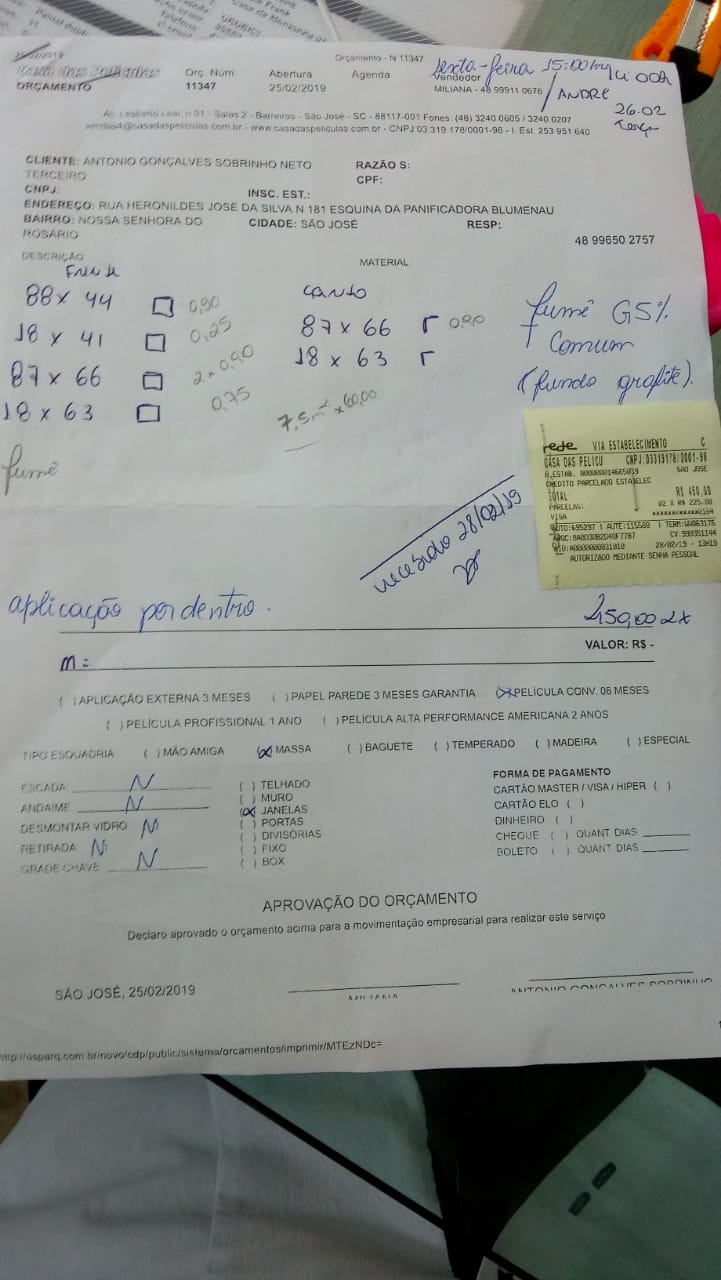 Orçamento - N 11347
sexta-feira 15:00
25/02/2019
Casa das Películas
ORÇAMENTO
Orç. Num
11347
Abertura
25/02/2019
Agenda
Vendedor
MILIANA - 48 99911 0676
/ ANDRE
26.02
Av. Leoberto Leal, n 01 - Salas 2 - Barreiros - São José - SC - 88117-001 Fones: (48) 3240 0605 / 3240 0207
vendas4@casadaspeliculas.com.br - www.casadaspeliculas.com.br - CNPJ 03.319.178/0001-98 - I. Est. 253 951 640
CLIENTE: ANTONIO GONÇALVES SOBRINHO NETO
TERCEIRO
RAZÃO S:
CPF:
CNPJ:
INSC. EST.:
ENDEREÇO: RUA HERONILDES JOSE DA SILVA N 181 ESQUINA DA PANIFICADORA BLUMENAU
BAIRRO: NOSSA SENHORA DO
ROSÁRIO
CIDADE: SÃO JOSÉ
RESP:
48 99650 2757
DESCRIÇÃO
MATERIAL
Frente
88 x 44 0,90
18 x 41 0,25
87 x 66 2 x 0,90
18 x 63 0,75
canto
87 x 66 0,90
18 x 63
7,5m² x 60,00
fumê G5%
comum
(fundo grafite).
fumê
rede VIA ESTABELECIMENTO C
CASA DAS PELICU CNPJ:03319178/0001-98
SÃO JOSE
CREDITO PARCELADO ESTABELEC
TOTAL: R$ 450,00
PARCELAS: 02 X R$ 225,00
VISA
28/02/19 - 13H19
AUTORIZADO MEDIANTE SENHA PESSOAL
recebido 28/02/19
aplicação por dentro.
VALOR: R$ -
m=
( ) APLICAÇÃO EXTERNA 3 MESES ( ) PAPEL PAREDE 3 MESES GARANTIA (x) PELÍCULA CONV. 06 MESES
( ) PELÍCULA PROFISSIONAL 1 ANO ( ) PELÍCULA ALTA PERFORMANCE AMERICANA 2 ANOS
TIPO ESQUADRIA ( ) MÃO AMIGA (x) MASSA ( ) BAGUETE ( ) TEMPERADO ( ) MADEIRA ( ) ESPECIAL
ESCADA: N
ANDAIME N
DESMONTAR VIDRO N
RETIRADA N
GRADE CHAVE N
( ) TELHADO
( ) MURO
(x) JANELAS
( ) PORTAS
( ) DIVISÓRIAS
( ) FIXO
( ) BOX
FORMA DE PAGAMENTO
CARTÃO MASTER / VISA / HIPER ( )
CARTÃO ELO ( )
DINHEIRO ( )
CHEQUE ( ) QUANT DIAS
BOLETO ( ) QUANT DIAS
APROVAÇÃO DO ORÇAMENTO
Declaro aprovado o orçamento acima para a movimentação empresarial para realizar este serviço
SÃO JOSÉ, 25/02/2019
MILIANA
ANTONIO GONCALVES SOBRINHO
http://osparq.com.br/novo/cdp/public/sistema/orcamentos/imprimir/MTEzNDc=